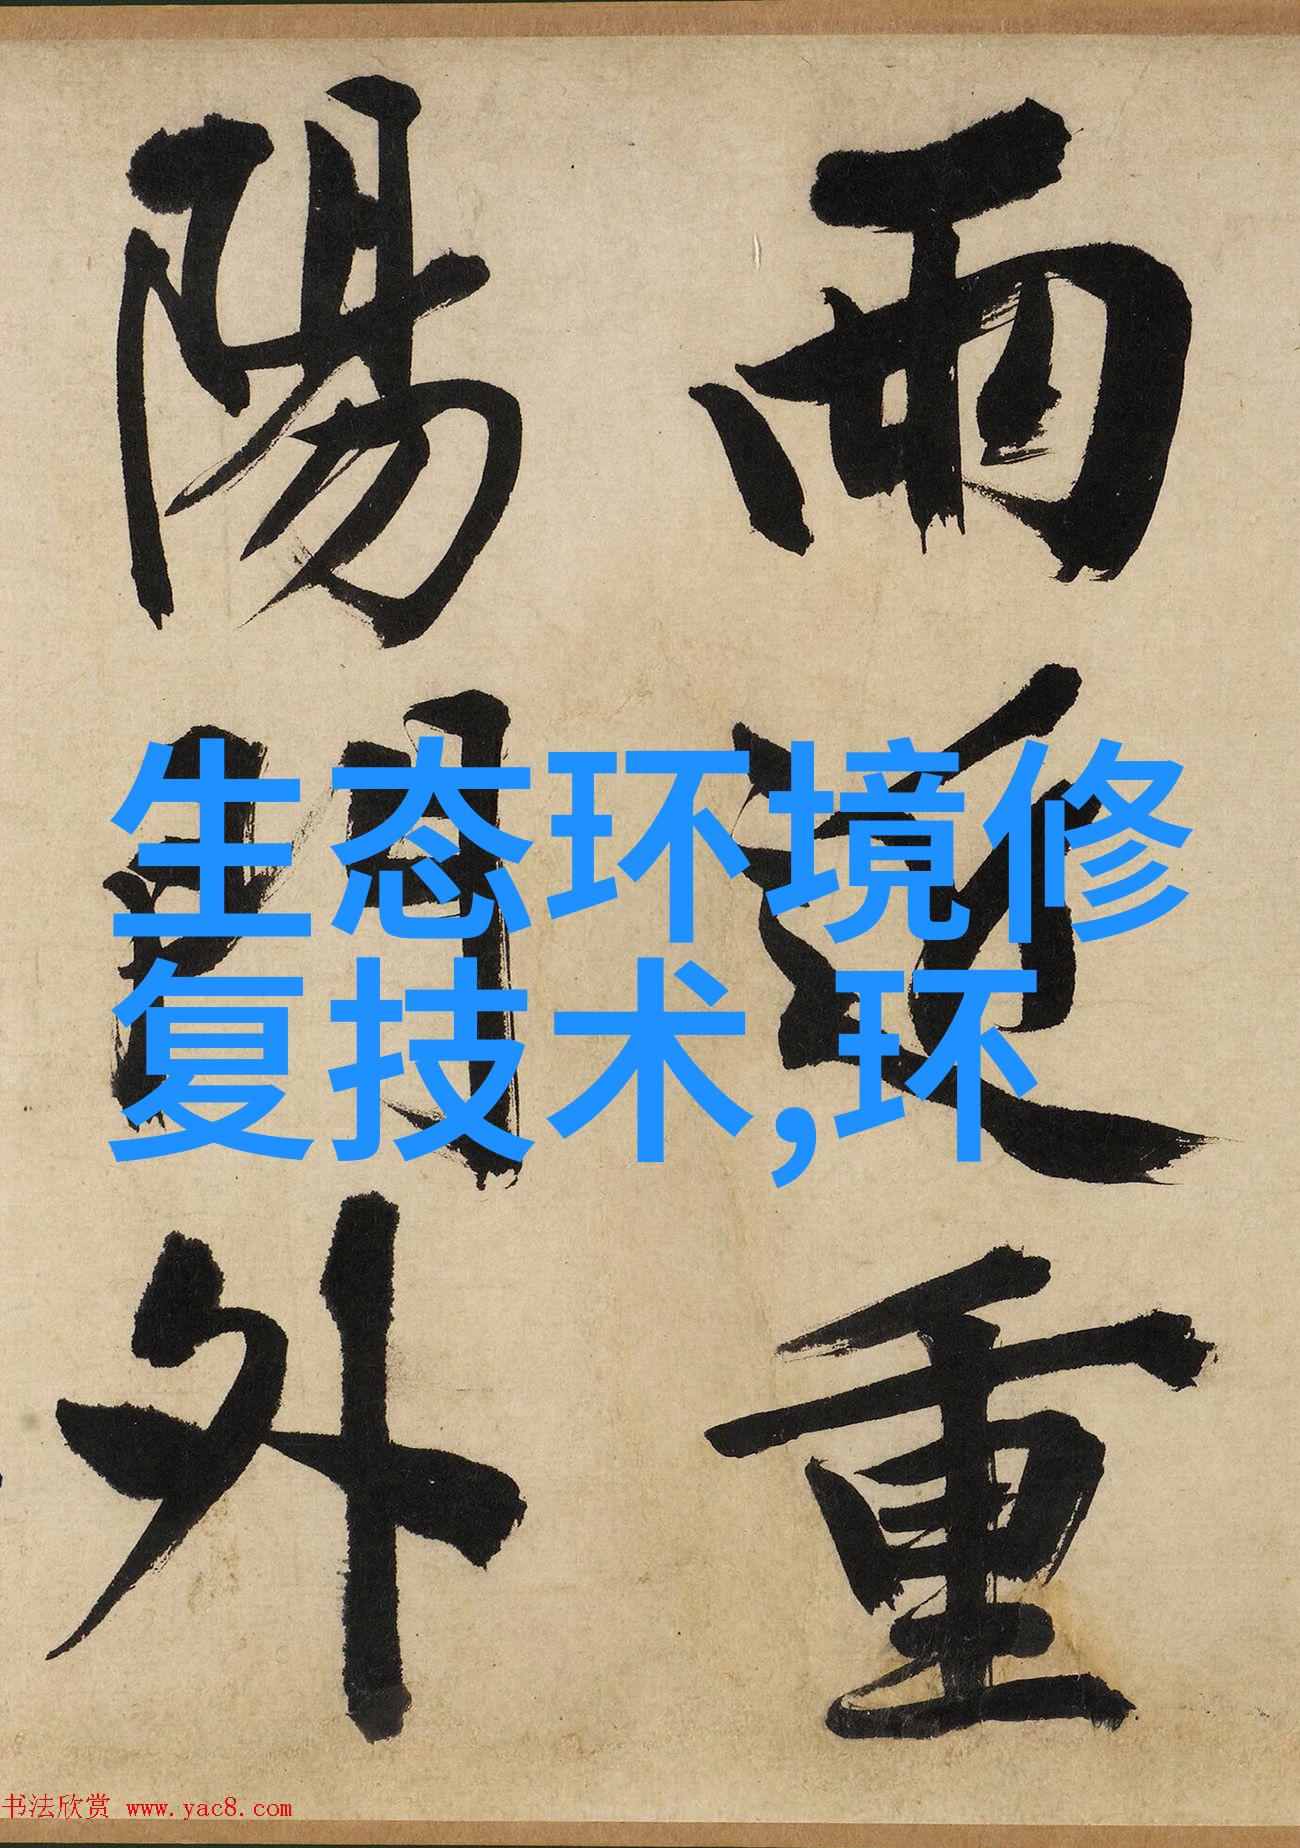 雨近重
陽門外
生态环境修
复技术,环
书法欣赏 www.yac8.com